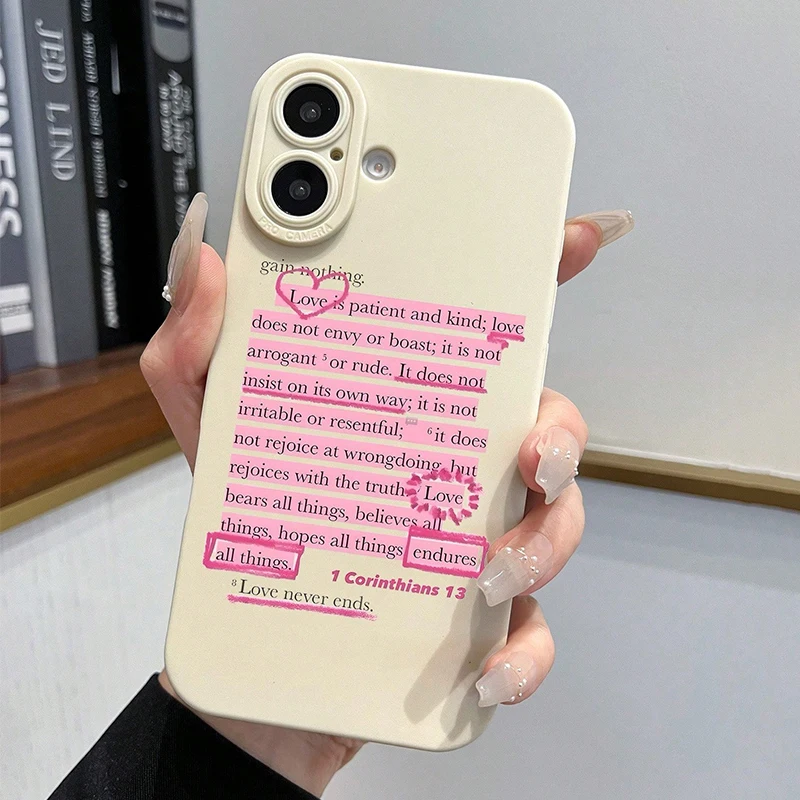 INESS
JED LIND
AROUND THE
PRO CAMERA
gain nothing.
Love is patient and kind; love
does not envy or boast; it is not
arrogant 5 or rude. It does not
insist on its own way; it is not
irritable or resentful; 6 it does
not rejoice at wrongdoing, but
rejoices with the truth. Love
bears all things, believes all
things, hopes all things, endures
all things.
1 Corinthians 13
8 Love never ends.